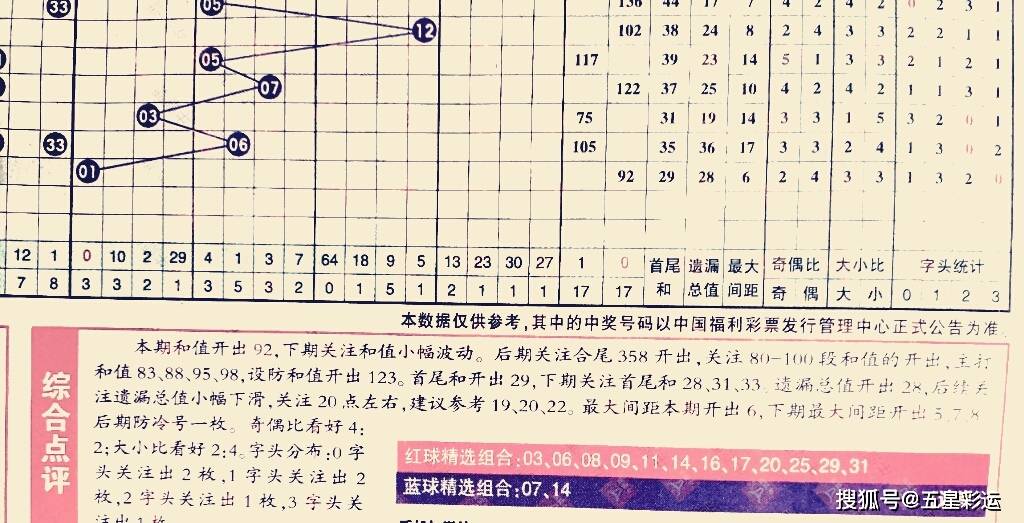 33 05 136 44 17 7 4 2 4 2 0 2 3 1
12 102 38 24 8 2 4 3 3 2 2 1 1
05 117 39 23 14 5 1 3 3 2 1 2 1
07 122 37 25 10 4 2 4 2 1 1 3 1
03 75 31 19 14 3 3 1 5 3 2 0 1
33 06 105 35 36 17 3 3 2 4 1 3 0 2
01 92 29 28 6 2 4 3 3 1 3 2 0
12 1 0 10 2 29 4 1 3 7 64 18 9 5 13 23 30 27 1 0 首尾 遗漏 最大 奇偶比 大小比 字头统计
7 8 3 3 2 1 3 5 3 2 0 1 5 1 2 1 1 1 17 17 和 总值 间距 奇 偶 大 小 0 1 2 3
本数据仅供参考,其中的中奖号码以中国福利彩票发行管理中心正式公告为准
综合点评
本期和值开出92,下期关注和值小幅波动。后期关注合尾358开出,关注80-100段和值的开出,主打
和值83、88、95、98,设防和值开出123。首尾和开出29,下期关注首尾和28、31、33。遗漏总值开出28,后续关
注遗漏总值小幅下滑,关注20点左右,建议参考19、20、22。最大间距本期开出6,下期最大间距开出5、7、8
后期防冷号一枚。奇偶比看好4:
2;大小比看好2:4。字头分布:0字
头关注出2枚,1字头关注出2
枚,2字头关注出1枚,3字头关
注出1枚
红球精选组合:03、06、08、09、11、14、16、17、20、25、29、31
蓝球精选组合:07、14
搜狐号@五星彩运